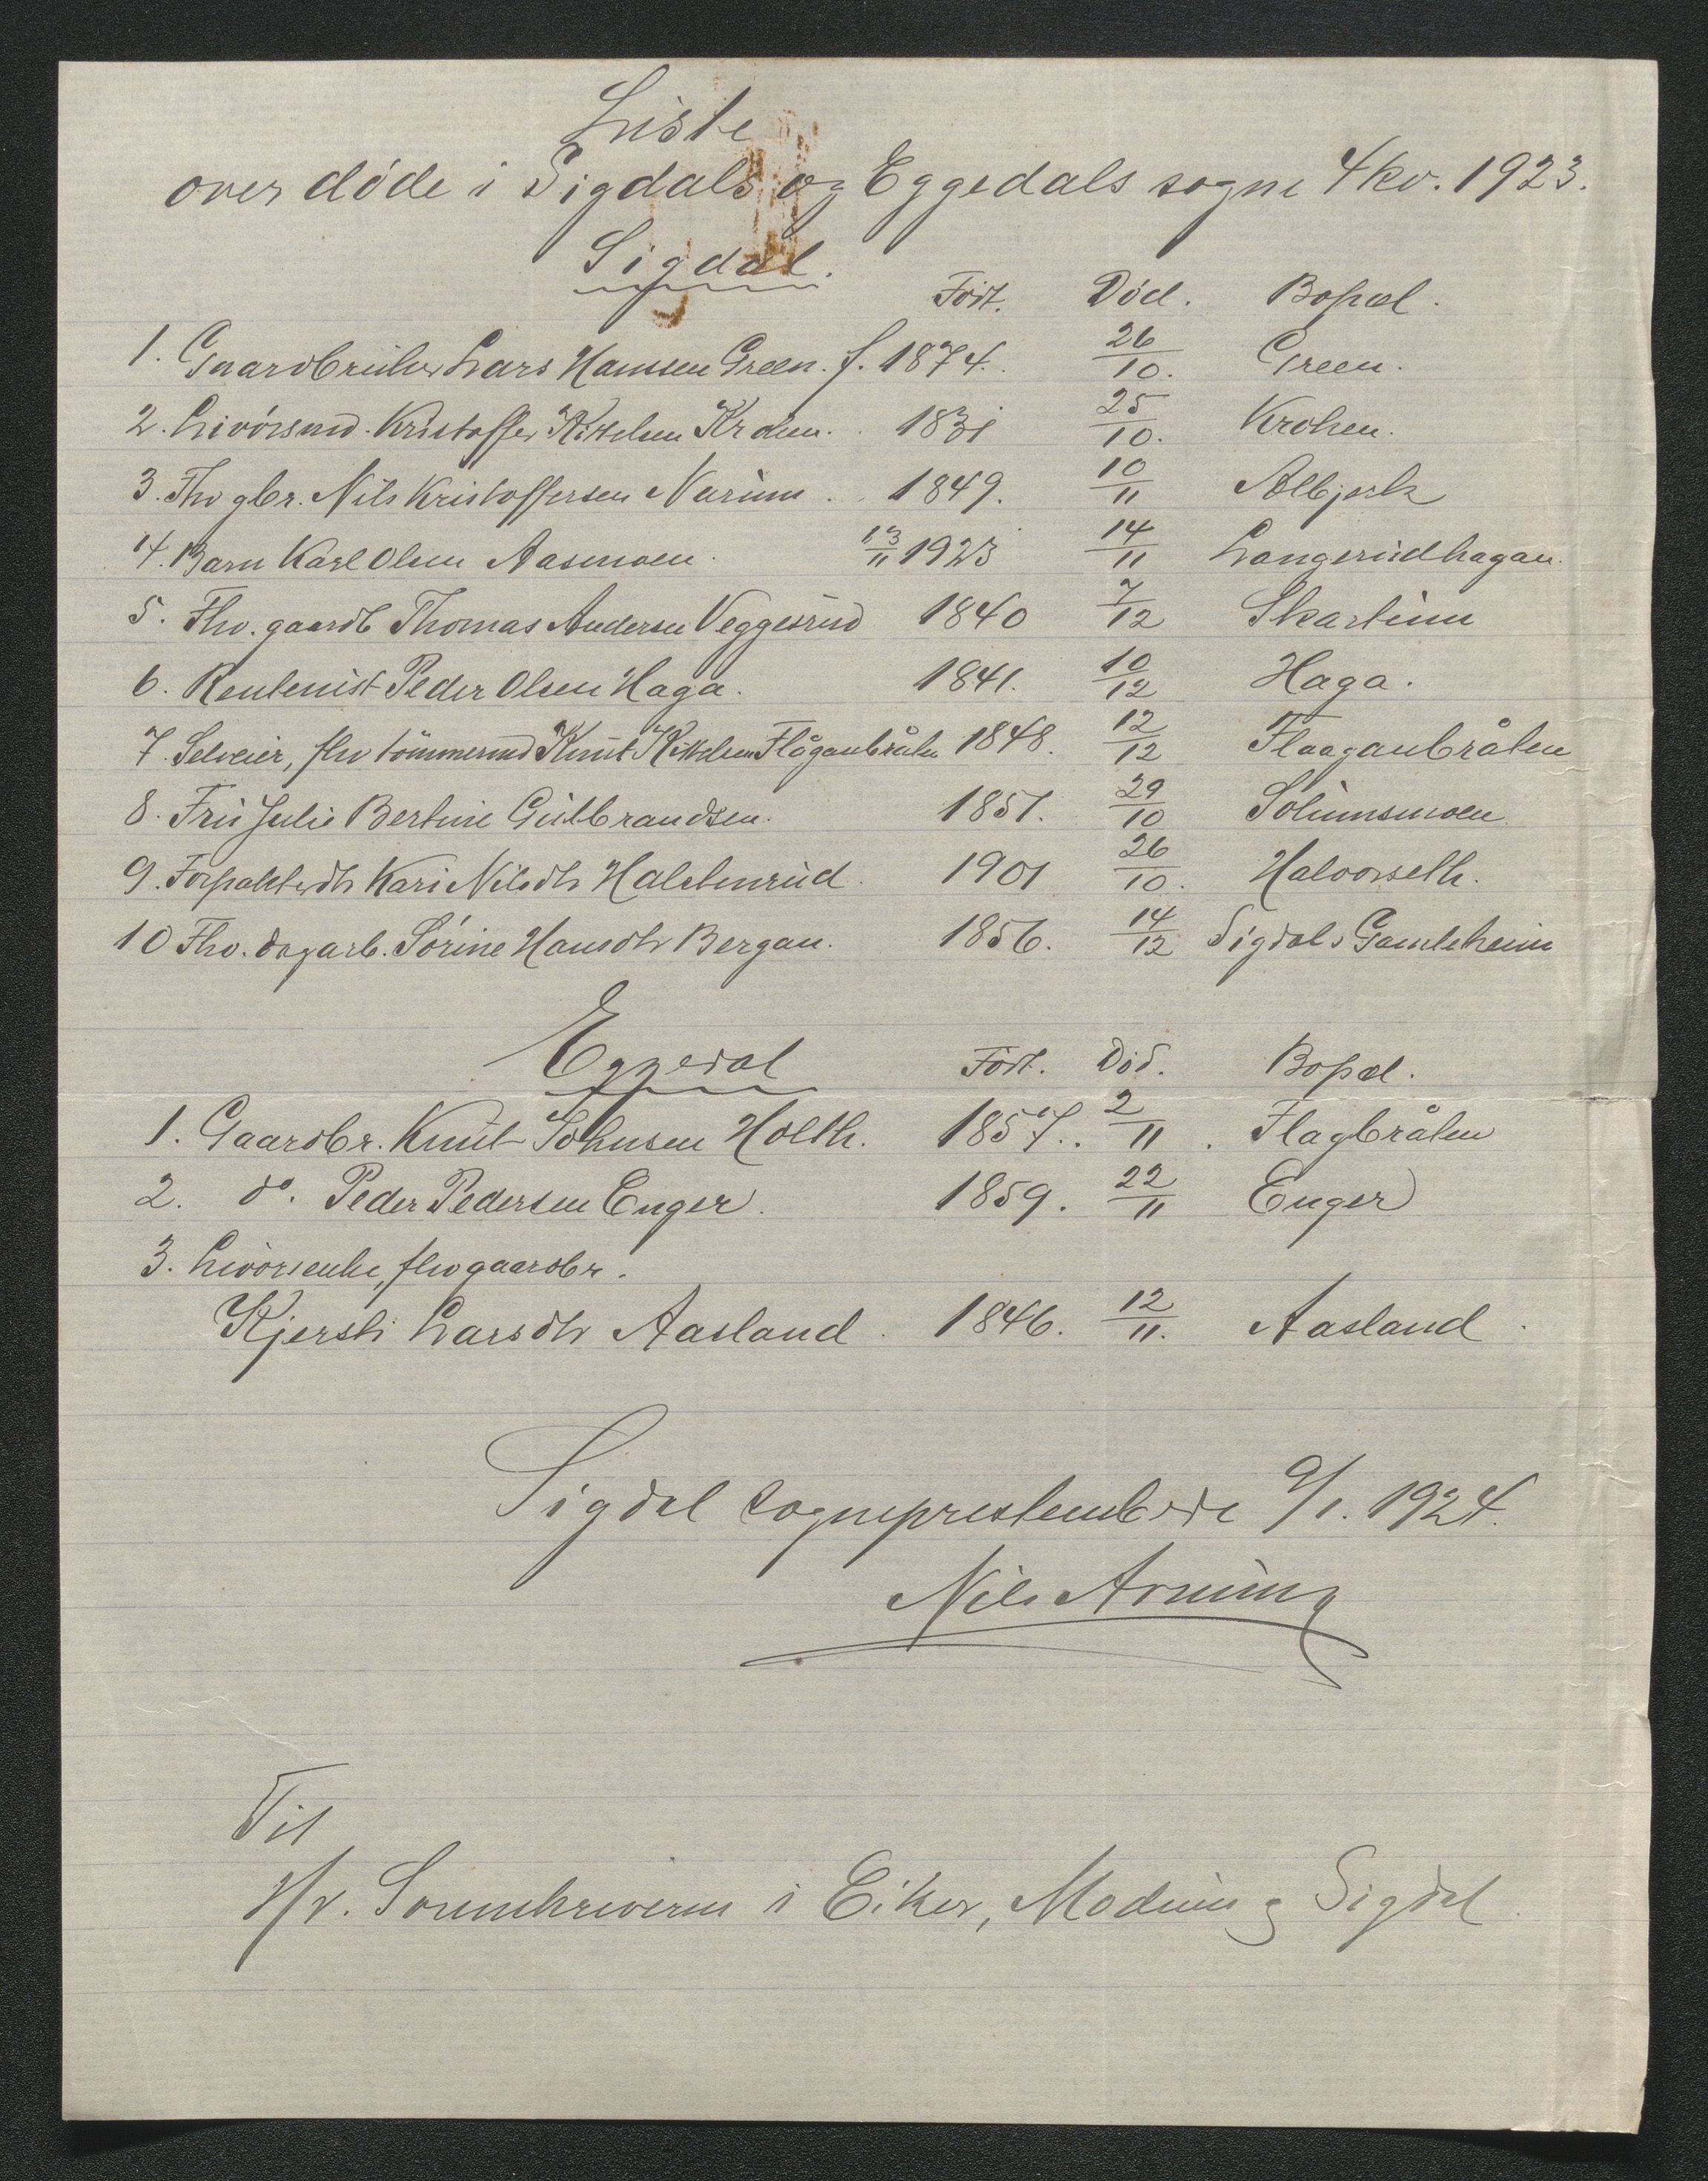 Liste
over døde i Sigdals og Eggedals sogne 4 kv. 1923.
Sigdal.
Født. Død. Bopæl.
1. Gaardbruker Lars Hanssen Green. f. 1874. 26/10. Green.
2. Livörsmd. Kristoffer Kittelsen Krohen. 1831 25/10. Krohen.
3. Fhv gbr. Nils Kristoffersen Narum. 1849. 10/11 Albjerk
4. Barn Karl Olsen Aasmoen. 13/11 1923 14/11 Langerudhagan.
5. Fhv. gaardb Thomas Andersen Veggesrud 1840 7/12 Skartum
6. Rentenist Peder Olsen Haga. 1841. 10/12 Haga.
7. Selveier, fhv tömmermd Knut Kittelsen Flåganbråten 1848. 12/12 Flaaganbråten
8. Fru Julie Bertine Gulbrandsen. 1851. 29/10 Solumsmoen
9. Forpakterdtr Kari Nilsdtr Halstenrud. 1901 26/10. Halvorseth.
10 Fhv. dagarb. Sörine Hansdtr Bergan. 1856. 14/12 Sigdals Gamleheim
Eggedal
Født. Død. Bopæl.
1. Gaardbr. Knut Johnsen Holth. 1857. 2/11. Flagbråten
2. do. Peder Pedersen Enger. 1859. 22/11 Enger
3. Livörsenke, fhv gaardbr.
Kjersti Larsdtr Aasland. 1846. 12/11. Aasland.
Sigdal sogneprestembede 9/1. 1924.
Nils Arning
Til
Hr. Sorenskriveren i Eiker, Modum og Sigdal.